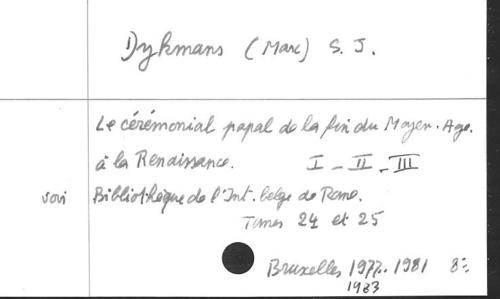 Dykmans (Marc) S. J.
Le cérémonial papal de la fin du Moyen. Age.
à la Renaissance. I - II - III
Bibliothèque de l'Int. belge de Rome.
Tomes 24 et 25
Bruxelles 1977. 1981 8º
1983